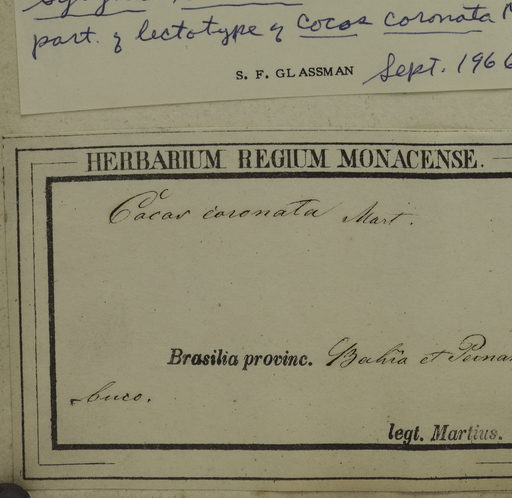 part. of lectotype of Cocos coronata M
S. F. GLASSMAN Sept. 1966
HERBARIUM REGIUM MONACENSE.
Cocos coronata Mart.
Brasilia provinc. Bahia et Pernam
buco.
legt. Martius.